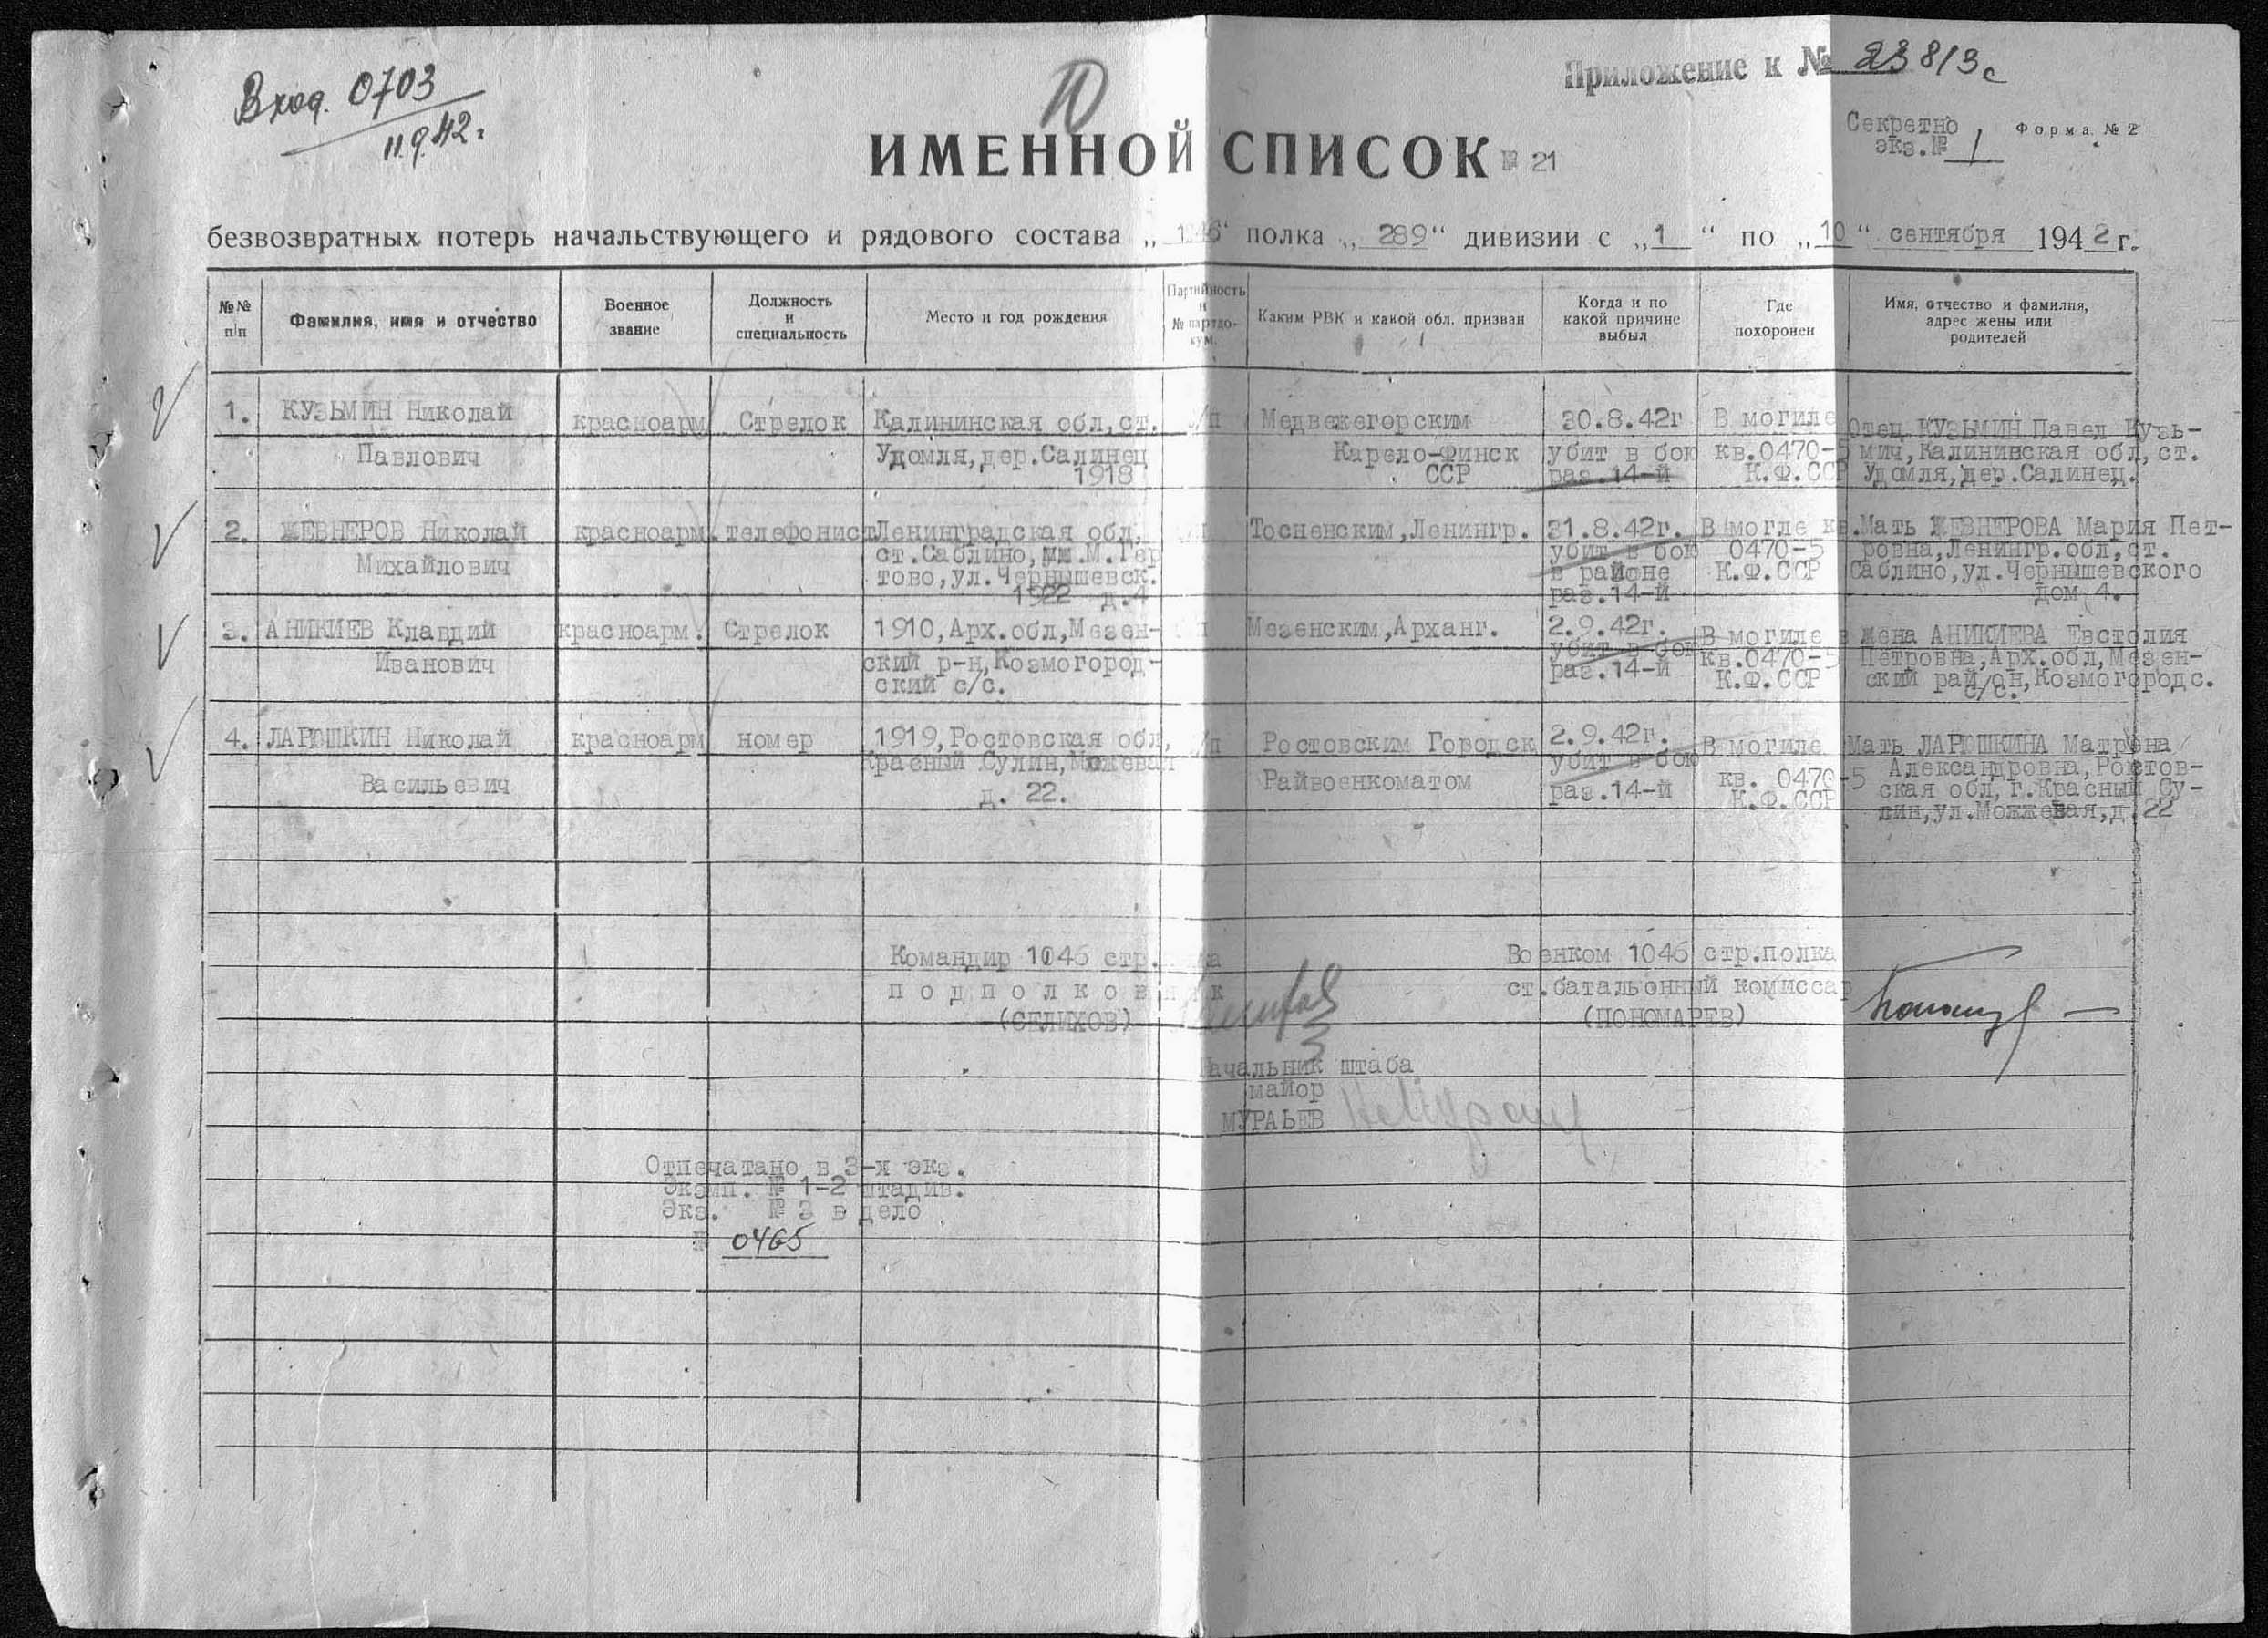 Вход. 0703
11.9.42г.
10
Приложение к № 23813с
Секретно
экз.№ 1
Форма № 2
ИМЕННОЙ СПИСОК № 21
безвозвратных потерь начальствующего и рядового состава „ “ полка „ 289 “ дивизии с „ 1 “ по „ 10 “ сентября 1942 г.
№№ п/п
Фамилия, имя и отчество
Военное звание
Должность и специальность
Место и год рождения
Партийность и № партдокум.
Каким РВК и какой обл. призван
Когда и по какой причине выбыл
Где похоронен
Имя, отчество и фамилия, адрес жены или родителей
1. КУЗЬМИН Николай красноарм Стрелок Калининская обл,ст. /п Медвежегорским 30.8.42г В могиле Отец КУЗЬМИН Павел Кузь-
Павлович Удомля,дер.Салинец Карело-Финск убит в бою кв.0470-5 мич,Калининская обл,ст.
1918 ССР раз.14-й К.Ф.ССР Удомля,дер.Салинец.
2. ЖЕВНЕРОВ Николай красноарм. телефонист Ленинградская обл, Тосненским,Ленингр. 31.8.42г. В могле кв. Мать ЖЕВНЕРОВА Мария Пет-
ст.Саблино, М.Гер убит в бою 0470-5 ровна,Ленингр.обл,ст.
Михайлович тово,ул.Чернышевск. в районе К.Ф.ССР Саблино,ул.Чернышевского
1922 д.4 раз.14-й дом 4.
3. АНИКИЕВ Клавдий красноарм. Стрелок 1910,Арх.обл,Мезен- Мезенским,Арханг. 2.9.42г. В могиле жена АНИКИЕВА Евстолия
Иванович ский р-н,Козмогород- убит в бою кв.0470-5 Петровна,Арх.обл,Мезен-
ский с/с. раз.14-й К.Ф.ССР ский район,Козмогородс.
с/с.
4. ЛАРЮШКИН Николай красноарм номер 1919,Ростовская обл, /п Ростовским Городск 2.9.42г. В могиле Мать ЛАРЮШКИНА Матрена
Красный Сулин,Можевая убит в бою Александровна,Ростов-
Васильевич д. 22. Райвоенкоматом раз.14-й кв. 0470-5 ская обл,г.Красный Су-
К.Ф.ССР лин,ул.Можжевая,д.22
Командир 1046 стр. Военком 1046 стр.полка
подполковник ст.батальонный комиссар
(СЕЛИХОВ) (ПОНОМАРЕВ)
Начальник штаба
майор
МУРАЬЕВ
Отпечатано в 3-х экз.
Экземп. № 1-2 штадив.
Экз. № 3 в дело
№ 0465